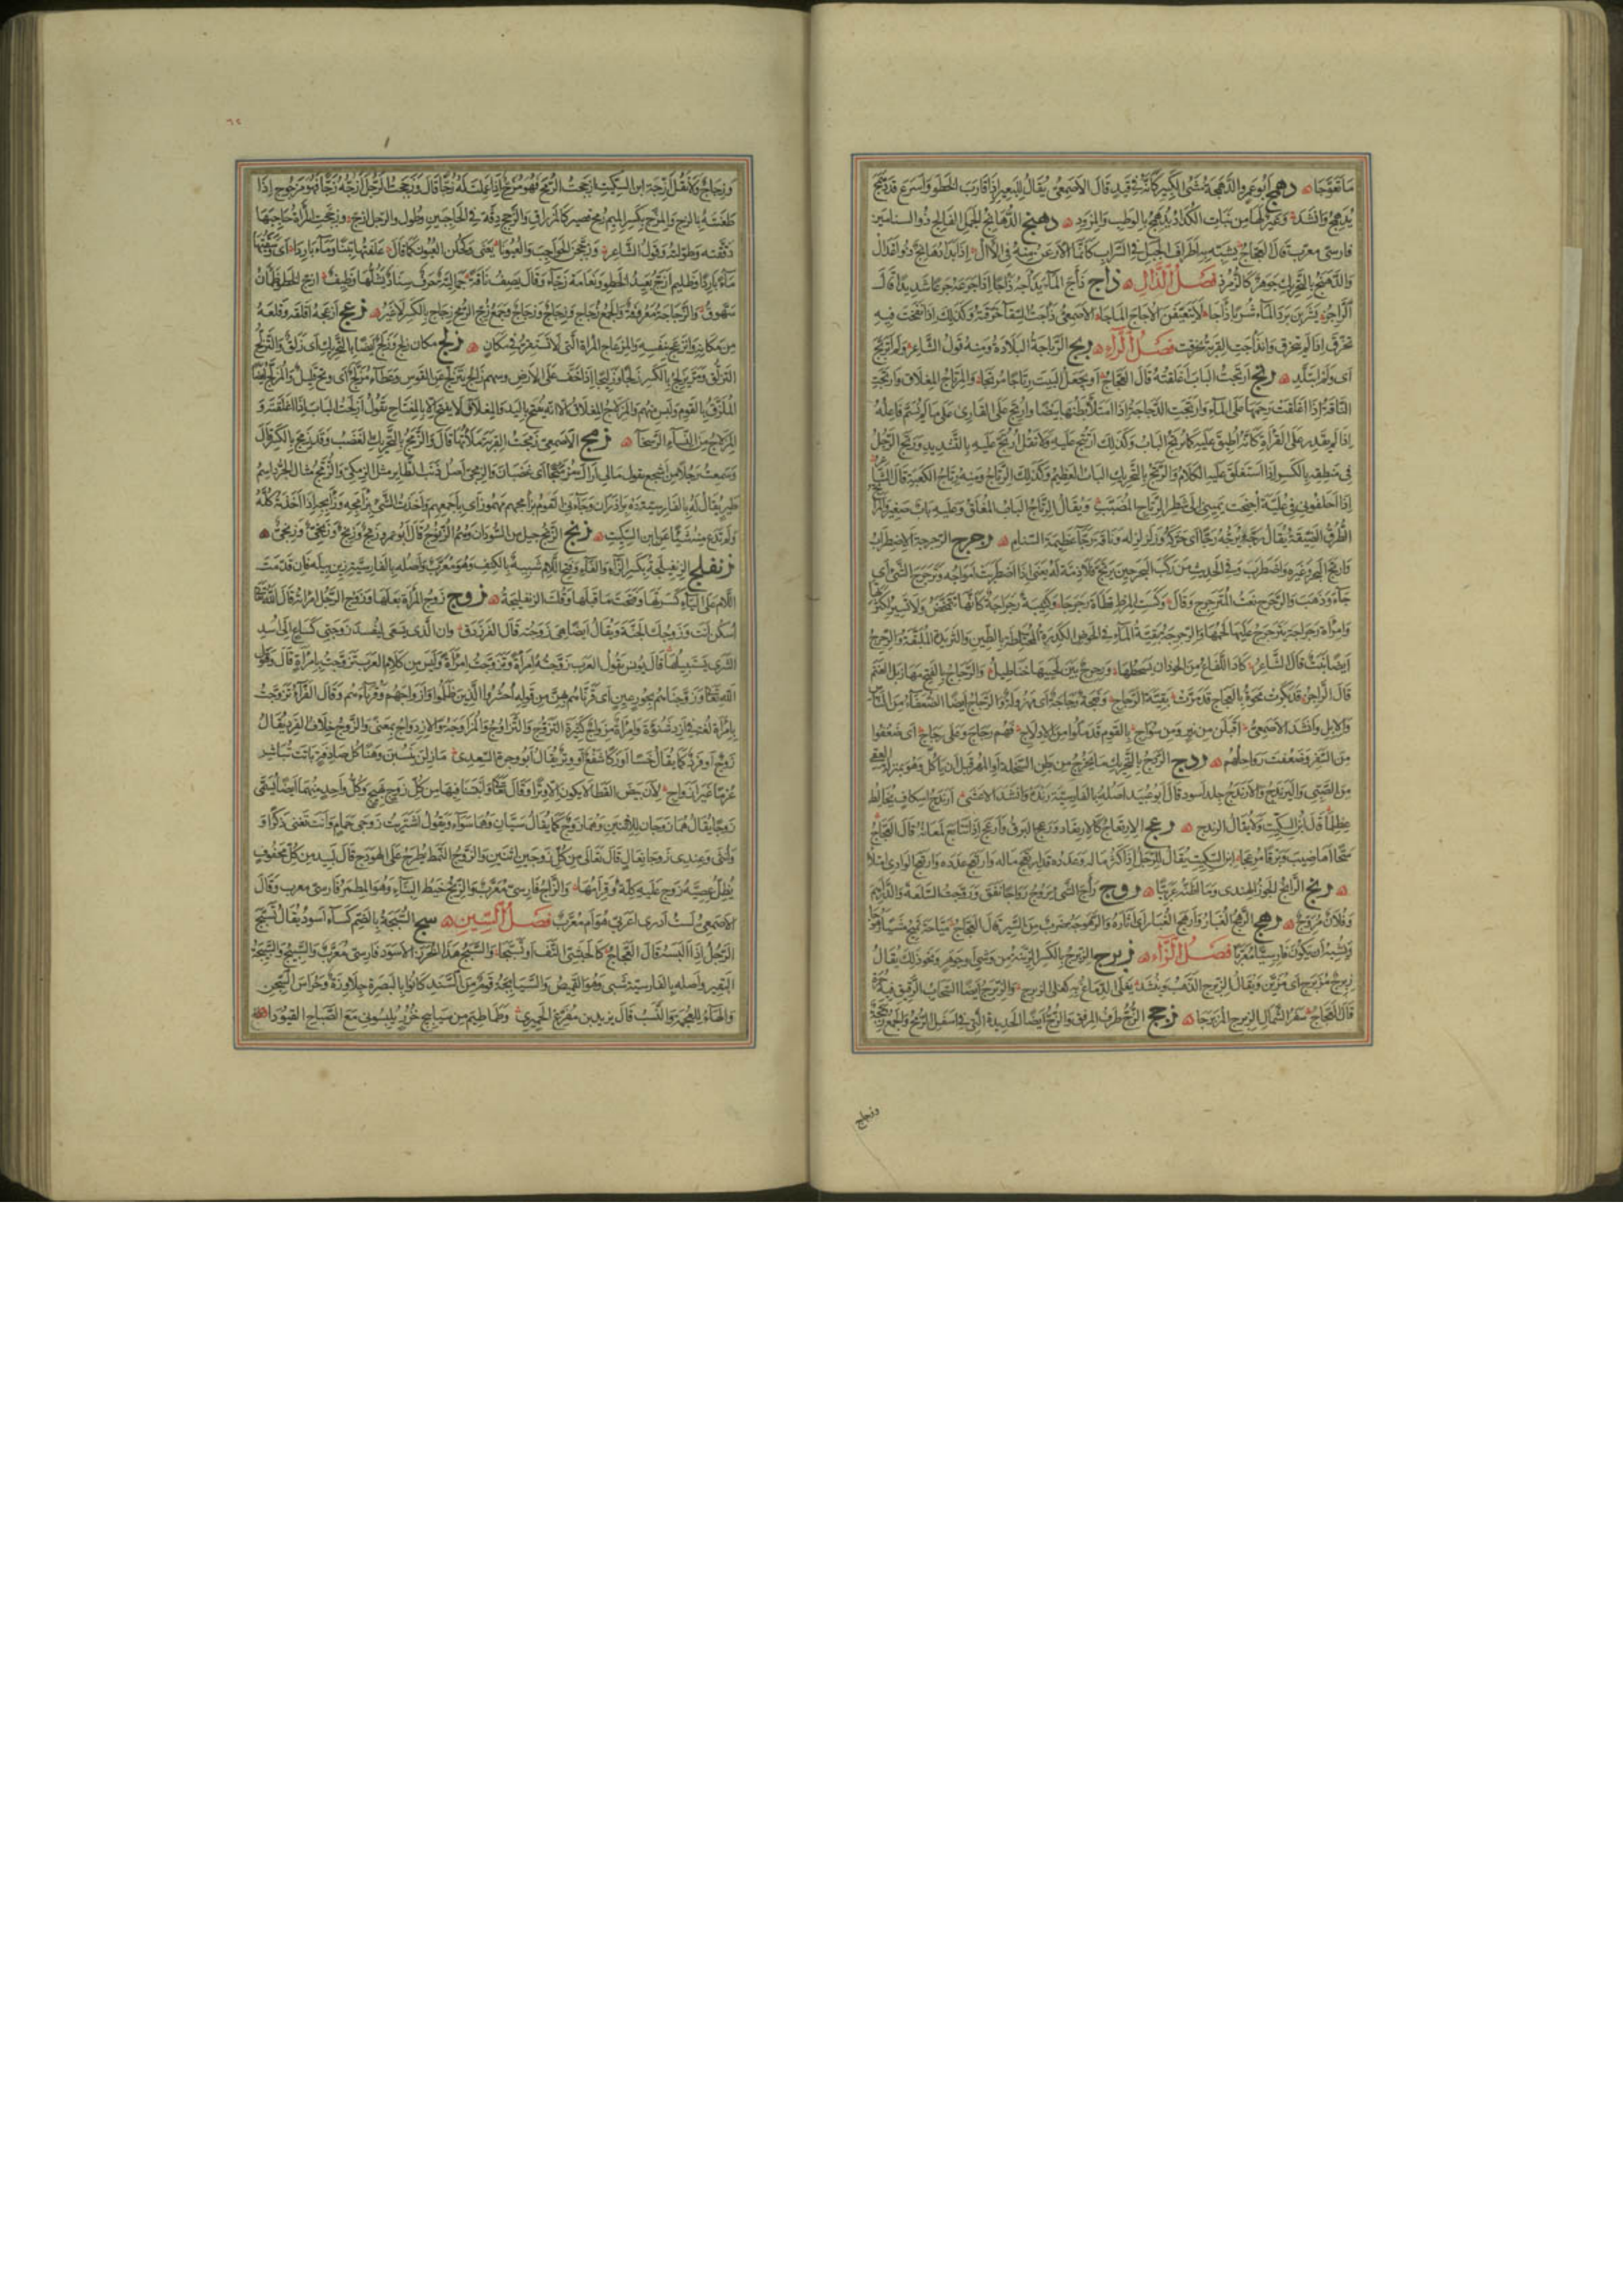 ما تعفجا دهمج ابو عمرو الدهمجة مشى الكبير كأنه فى قيد قال الاصمعى يقال للبعير اذا قارب الخطو واسرع قد دهمج
يدهمج وانشد وعير لها من بنات الكداد يدهمج بالوطب والمزود دهنج الدهانج الجمل الفالج ذو السنامين
فارسى معرب قال العجاج يشبه به اطراف الجبل فى السراب كأنما الارعن منه فى الآل اذا بدا دهانج ذو اعدال
والدهنج بالتحريك جوهر كالزمرد فصل الذال ذأج ذأج الماء يذأجه ذأجا اذا جرعه جرعا شديدا قال
الراجز يشربن برد الماء شربا ذأجا لا يتعيفن الاجاج المأجا الاصمعى ذأجت السقاء خرقته وكذلك اذا نفخت فيه
تخرق اذا لم يتخرق وانذأجت القربة تخرقت فصل الراء ربج الرباجة البلادة ومنه قول الشاعر ولم اتربج
اى ولم اتبلد رتج ارتجت الباب اغلقته قال العجاج او يجعل البيت رتاجا مرتجا والمرتاج المغلاق وارتجت
الناقة اذا اغلقت رحمها على الماء وارتجت الدجاجة اذا امتلأ بطنها بيضا وارتج على القارئ على ما لم يسم فاعله
اذا لم يقدر على القراءة كأنه اطبق عليه كما يرتج الباب وكذلك ارتتج عليه ولا تقل ارتج عليه بالتشديد ورتج الرجل
فى منطقه بالكسر اذا استغلق عليه الكلام والرتج بالتحريك الباب العظيم وكذلك الرتاج ومنه رتاج الكعبة قال الشاعر
اذا احلفونى فى علية اجنحت يمينى الى شطر الرتاج المضبب ويقال الرتاج الباب المغلق وعليه باب صغير والمراتج
الطرق الضيقة يقال رجه يرجه رجا اى حركه وزلزله وناقة رجاء عظيمة السنام رجرج الرجرجة الاضطراب
وارتج البحر وغيره واضطرب وفى الحديث من ركب البحر حين يرتج فلا ذمة له يعنى اذا اضطربت امواجه وترجرج الشئ اى
جاء وذهب والرجرج نعت المترجرج وقال وكست المرط قطاة رجرجا وكتيبة رجراجة كأنها تتمخض ولا تسير لكثرتها
وامرأة رجراجة يترجرج عليها لحمها والرجرجة بقية الماء فى الحوض الكدرة المختلطة بالطين والثريدة الملبقة والرجرج
ايضا نبت قال الشاعر كاد اللعاع من الحوذان يسحطها ورجرج بين لحييها خناطيل والرجاج بالفتح مهازيل الغنم
قال الراجز قد بكرت محوة بالعجاج فدمرت بقية الرجاج ونعجة رجاجة اى مهزولة والرجاج ايضا الضعفاء من الناس
والابل وانشد الاصمعى اقبلن من نير ومن سواج بالقوم قد ملوا من الادلاج فهم رجاج وعلى رجاج اى ضعفوا
من السفر وضعفت رواحلهم ردج الردج بالتحريك ما يخرج من بطن السخلة او المهر قبل ان يأكل وهو بمنزلة العقى
من الصبى واليرندج والارندج جلد اسود قال ابو عبيد اصله بالفارسية رنده وانشد الاعشى ارندج اسكاف يخالط
عظلما قال ابن السكيت ولا يقال الرندج رعج الارتعاج كالارتعاد ورعج البرق وارعج اذا تتابع لمعانه قال العجاج
سحا اهاضيب وبرقا مرعجا ابن السكيت يقال للرجل اذا كثر ماله وعدده قد ارتعج ماله وارتعج عدده وارتعج الوادى امتلأ
رنج الرانج الجوز الهندى وما اظنه عربيا روج راج الشئ يروج رواجا نفق وروجت السلعة والدراهم
وفلان مروج رهج الرهج الغبار وارهج الغبار اى اثاره والرهوجة ضرب من السير قال العجاج مياحة تميح مشيا رهوجا
ويشبه ان يكون فارسيا معربا فصل الزاء زبرج الزبرج بالكسر الزينة من وشى او جوهر ونحو ذلك يقال
زبرج مزبرج اى مزين ويقال الزبرج الذهب وينشد يغلى الدماغ به كغلى الزبرج والزبرج ايضا السحاب الرقيق فيه حمرة
قال العجاج سفر الشمال الزبرج المزبرجا زجج الزج طرف المرفق والزج ايضا الحديدة التى فى اسفل الرمح والجمع زججة
وزجاج
وزجاج ولا تقل ازجة ابن السكيت ازججت الرمح فهو مزج اذا عملت له زجا قال وزججت الرجل ازجه زجا فهو مزجوج اذا
طعنته بالزج والمزج بكسر الميم رمح قصير كالمزراق والزجج دقة فى الحاجبين وطول والرجل ازج وزججت المرأة حاجبها
دققته وطولته وقول الشاعر وزججن الحواجب والعيونا يعنى وكحلن العيون كما قال علفتها تبنا وماء باردا اى وسقيتها
ماء باردا وظليم ازج بعيد الخطو ونعامة زجاء وقال يصف ناقة جمالية حرف سناد يشلها وظيف ازج الخطو ظمآن
سهوق والزجاجة معروفة والجمع زجاج وزجاج وزجاج وجمع زج الرمح زجاج بالكسر لا غير زعج ازعجه اقلقه وقلعه
من مكانه وانزعج بنفسه والمزعاج المرأة التى لا تستقر فى مكان زلج مكان زلج وزلج ايضا بالتحريك اى زلق والتزلج
التزلق ومر يزلج بالكسر زلجا وزليجا اذا خف على الارض وسهم زالج يتزلج عن القوس وعطاء مزلج اى وتح قليل والمزلج ايضا
الملزق بالقوم وليس منهم والمزلاج المغلاق الا انه يفتح باليد والمغلاق لا يفتح الا بالمفتاح تقول ازلجت الباب اذا اغلقته و
المزلاج من النساء الرسحاء زمج الاصمعى زمجت القربة ملأتها قال والزمج بالتحريك الغضب وقد زمج بالكسر قال
وسمعت رجلا من اشجع يقول مالى اراك مزمئجا اى غضبان والزمجى اصل ذنب الطاير مثل الزمكى والزمج مثال الخرد اسم
طير يقال له بالفارسية ده برادران وجاءنى القوم بزأمجهم مهموز اى باجمعهم واخذت الشئ بزأمجه وزأبجه اذا اخذته كله
ولم تدع منه شيئا عن ابن السكيت زنج الزنج جيل من السودان وهم الزنوج قال ابو عمرو زنج وزنج وزنجى وزنجى
زنفلج الزنفيلجة بكسر الزاء والفاء وفتح اللام شبيه بالكنف وهو معرب واصله بالفارسية زين بيله فان قدمت
اللام على الياء كسرتها وفتحت ما قبلها وقلت الزنفليجة زوج زوج المرأة بعلها وزوج الرجل امرأته قال الله تعالى
اسكن انت وزوجك الجنة ويقال ايضا هى زوجته قال الفرزدق وان الذى يسعى ليفسد زوجتى كساع الى اسد
الشرى يستبيلها قال يونس تقول العرب زوجته امرأة وتزوجت امرأة وليس من كلام العرب تزوجت بامرأة قال وقول
الله تعالى وزوجناهم بحور عين اى قرناهم بهن من قوله احشروا الذين ظلموا وازواجهم وقرناءهم وقال الفراء تزوجت
بامرأة لغة فى ازد شنوءة وامرأة مزواج كثيرة التزوج والتزاوج والمزاوجة والازدواج بمعنى والزوج خلاف الفرد يقال
زوج او فرد كما يقال خسا او زكا شفع او وتر يقال ابو وجزة السعدى ما زلن ينسبن وهنا كل صادقة باتت تباشر
عرما غير ازواج لان بيض القطا لا يكون الا وترا وقال تعالى وانبتنا فيها من كل زوج بهيج وكل واحد منهما ايضا يسمى
زوجا يقال هما زوجان للاثنين وهما زوج كما يقال سيان وهما سواء وتقول اشتريت زوجى حمام وانت تعنى ذكرا و
وانثى وعندى زوجا نعال قال تعالى من كل زوجين اثنين والزوج النمط يطرح على الهودج قال لبيد من كل محفوف
يظل عصيه زوج عليه كلة وقرامها والزاج فارسى معرب والزيج خيط البناء وهو المطمر فارسى معرب وقال
الاصمعى لست ادرى اعربى هو ام معرب فصل السين سبج السبجة بالضم كساء اسود يقال تسبج
الرجل اذا البسه قال العجاج كالحبشى التف او تسبجا والسبج هذا الخرز الاسود فارسى معرب والسبيج والسبيجة
البقير واصله بالفارسية شبى وهو القميص والسيابجة قوم من السند كانوا بالبصرة جلاوزة وحراس السجن
والهاء للعجمة والنسب قال يزيد بن مفرغ الحميرى وطماطيم من سبابيج خزر يلبسونى مع الصباح القيودا